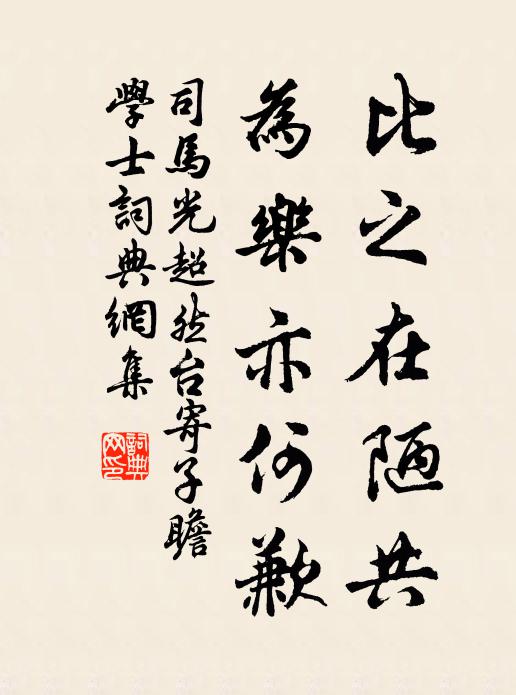 比之在陋共
為樂亦何歉
司馬光超然台寄子瞻
學士詞典網集
詞典网印